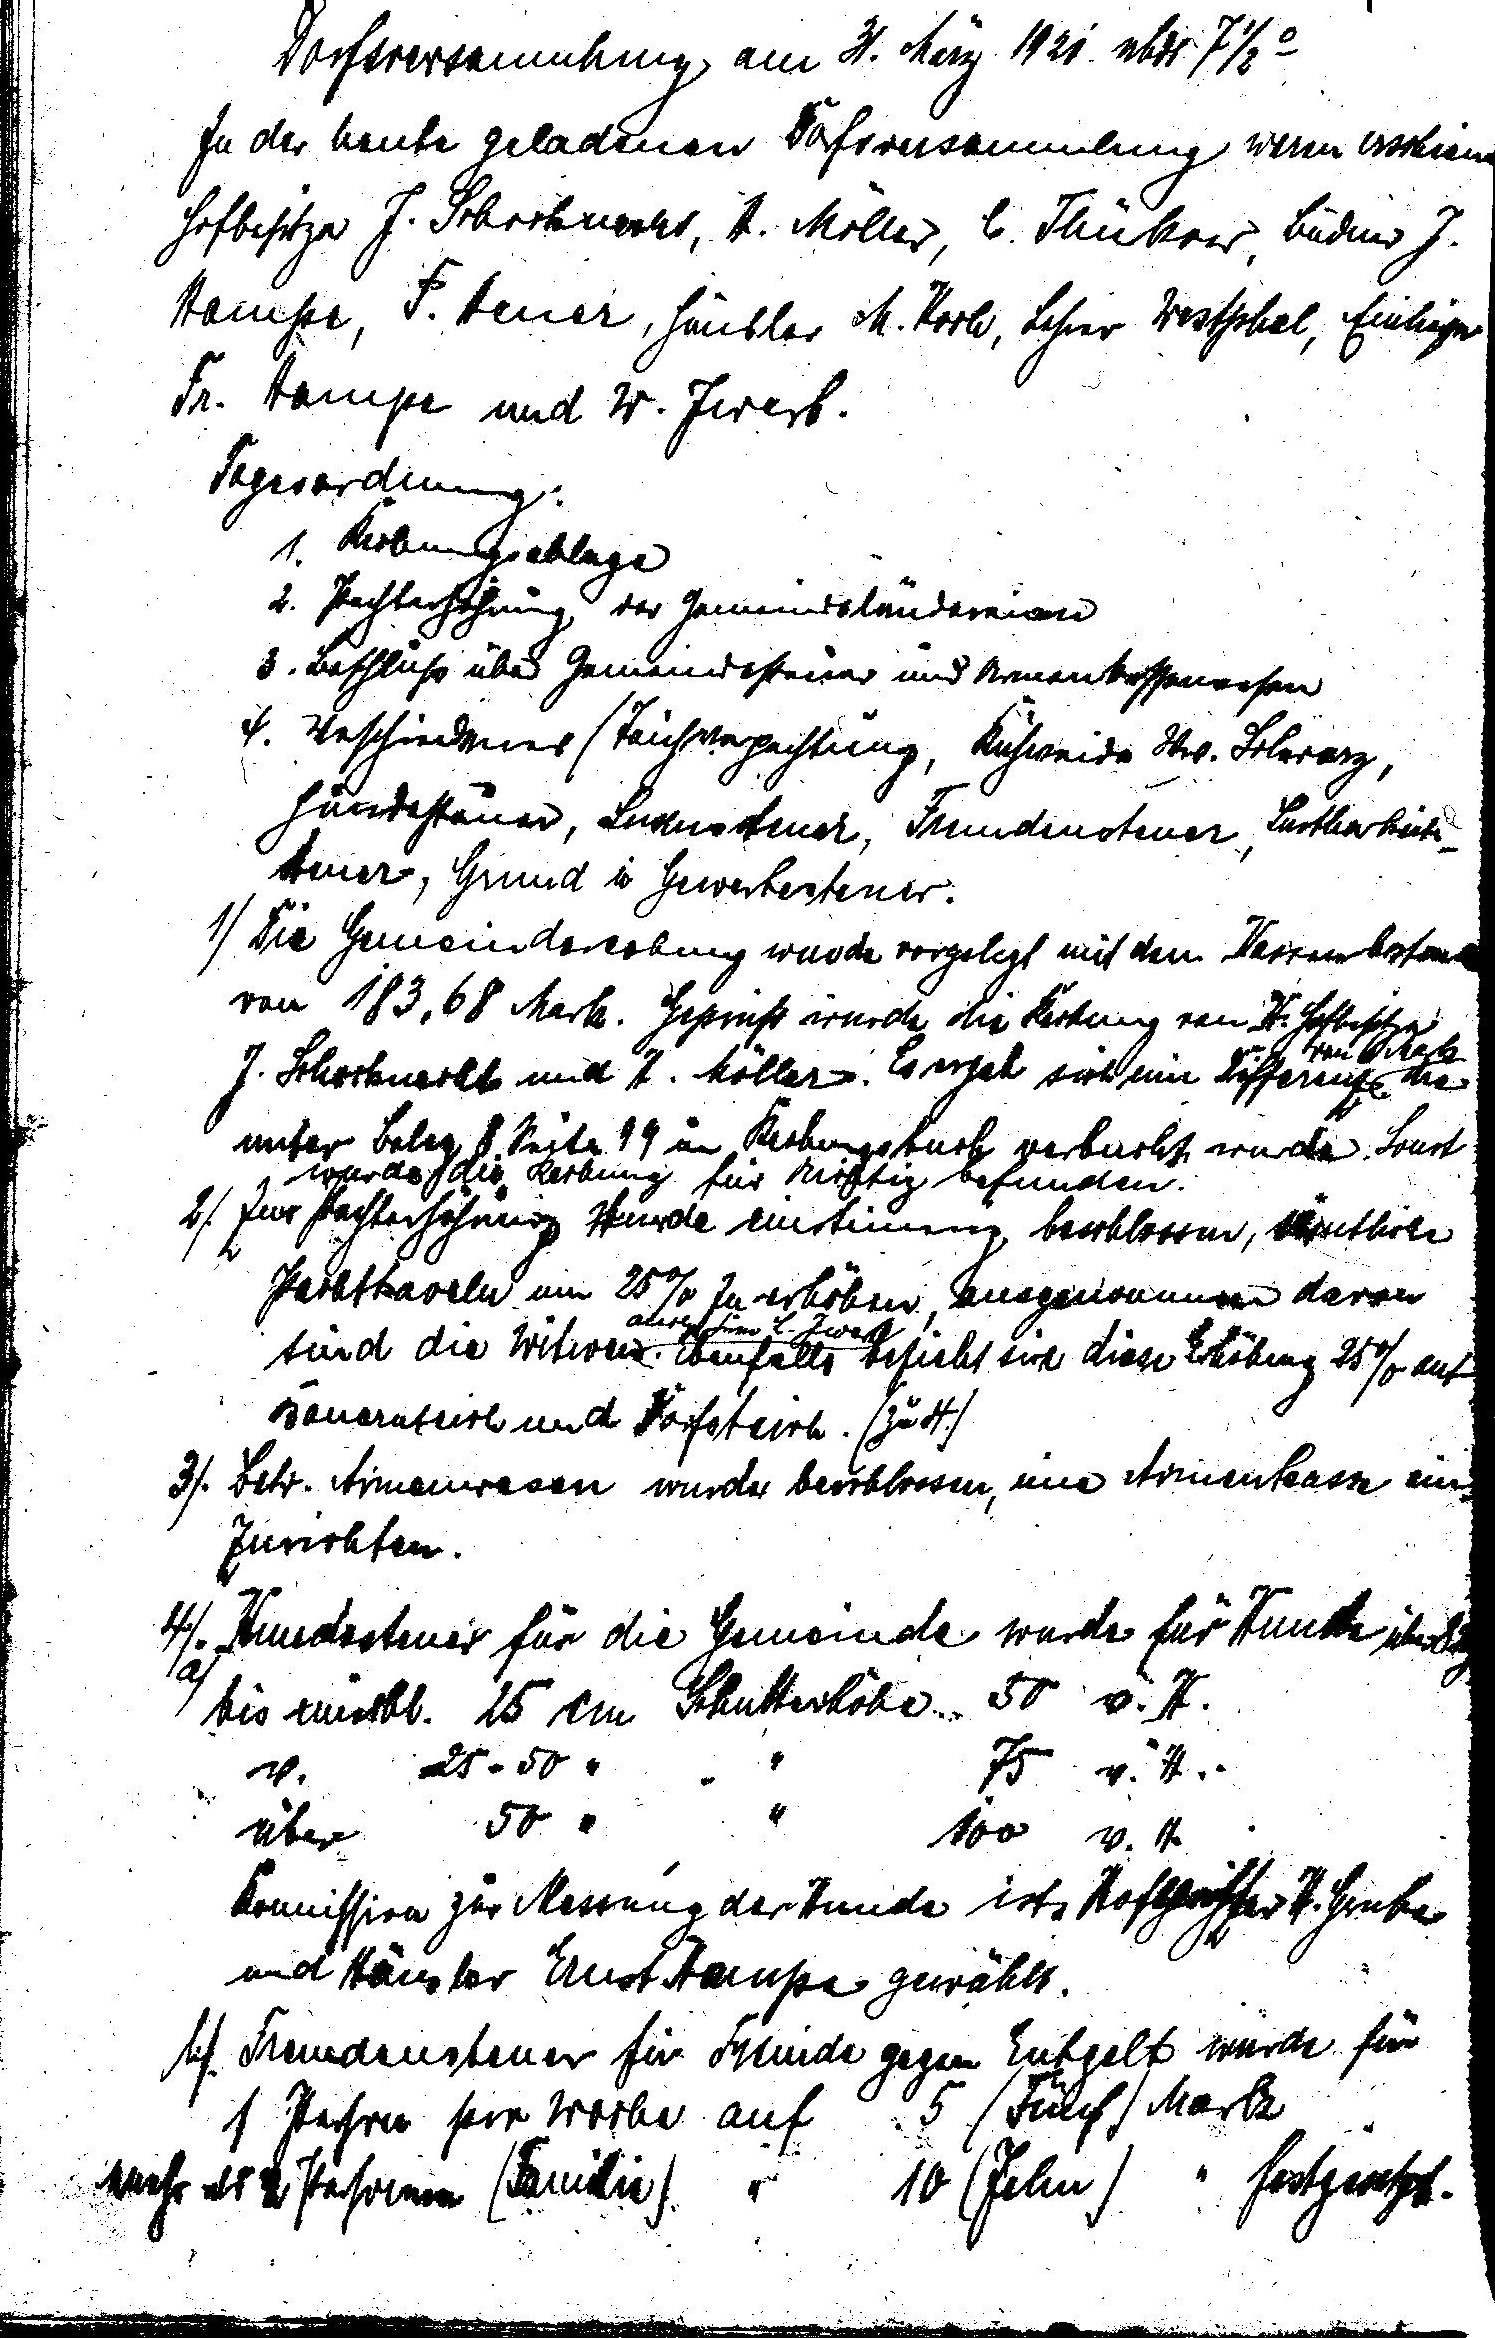 Dorfsversammlung am 31. März 1921 abds 7 1/2 o
In der heute geladenen Dorfsversammlung waren erschienen
Hofbesitzer J. Schorknecht, H. Möller, C. Büdner J.
Hampe, F. Häusler M. Koch, Lehrer Westphal, Einlieger
Fr. Hampe und W.
Tagesordnung:
1. Rechnungsablage
2. Pachterhöhung der Gemeindeländereien
3. Beschluß über Gemeindesteuer und Armenkassenwesen
4. Verschiedenes (Teichverpachtung, Kuhweide Ww. Schwarz,
Hundesteuer, Fremdensteuer, Lustbarkeits-
steuer, Grund u Gewerbesteuer.
1/ Die Gemeinderechnung wurde vorgelegt mit dem Kassenbestand
von 183,68 Mark. Geprüft wurde die Rechnung von H. Hofbesitzer
J. Schorknecht und H. Möller. Es ergab sich eine Differenz von Mark die
unter Beleg 8 Seite 19 im Rechnungsbuch verbucht wurde. Sonst
wurde die Rechnung für richtig befunden.
2/. Zur Pachterhöhung wurde einstimmig beschlossen, sämtliche
Pachtkaveln um 25% zu erhöhen, ausgenommen davon
sind die Witwen. ebenfalls bezieht sich diese Erhöhung 25% auf
Bauernteich und Dorfsteich. (zu 4.)
3/. Betr. Armenwesen wurde beschlossen, eine Armenkasse ein-
zurichten.
4/. Hundesteuer für die Gemeinde wurde für Hunde
a/ bis einschl. 25 cm Schulterhöhe 50 v. H.
v. 25-50 " " 75 v. H.
über 50 " " 100 v. H.
Kommission zur Messung der Hunde ist Hofbesitzer H. Grube
und Häusler Ernst Hampe gewählt.
b/. Fremdensteuer für Fremde gegen Entgelt wurde für
1 Person pro Woche auf 5 (Fünf) Mark
mehr als 2 Personen (Familie) " 10 (Zehn) " festgesetzt.